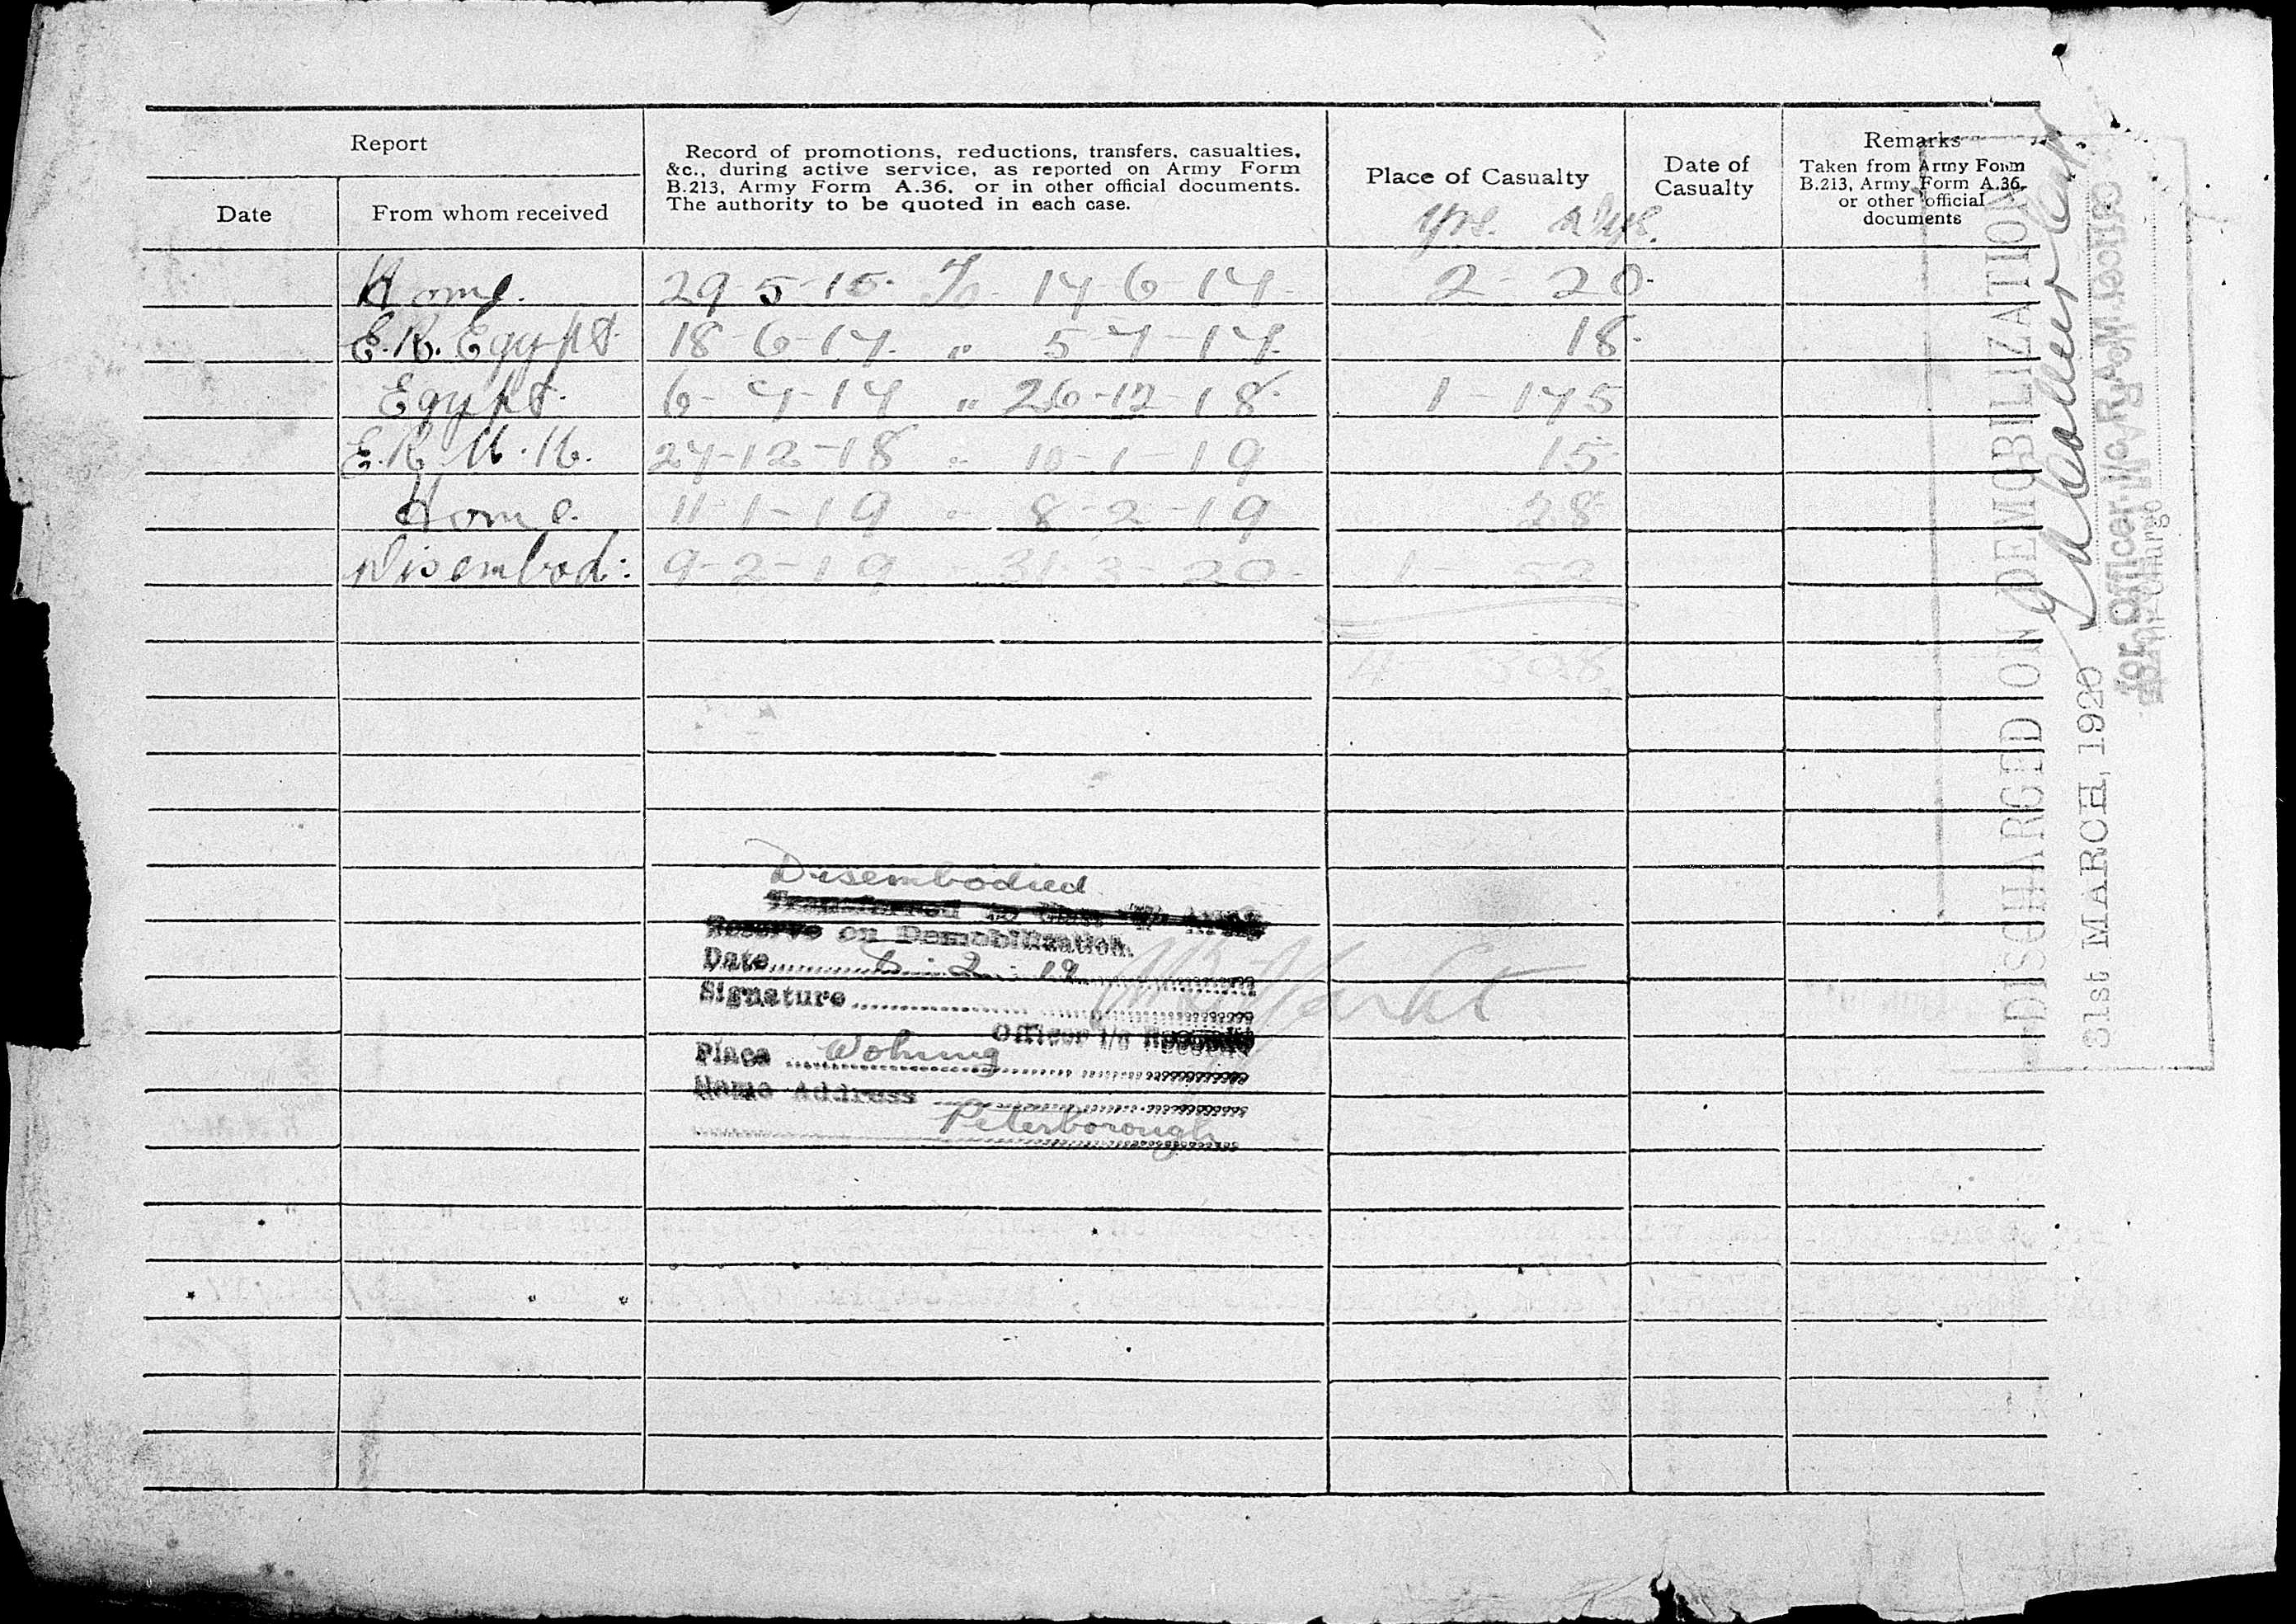 Report
Record of promotions, reductions, transfers, casualties,
&c., during active service, as reported on Army Form
B.213, Army Form A.36, or in other official documents.
The authority to be quoted in each case.
Place of Casualty
Date of
Casualty
Remarks
Taken from Army Form
B.213, Army Form A.36,
or other official
documents
Date
From whom received
yrs. dys.
Home. 29-5-15. To 17-6-17. 2 - 20.
E.R. Egypt. 18-6-17. " 5-7-17. 18.
Egypt. 6-7-17 " 26-12-18. 1 - 175
E.R. U.K. 27-12-18 - 10-1-19 15.
Home. 11-1-19 - 8-2-19 28
Disembod: 9-2-19 31-3-20. 1 52
4 308
Disembodied
Transferred to Class Army
Reserve on Demobilization.
Date 8. 2. 19
Signature
Officer i/c Records
Place Woking
Home Address
Peterborough
DISCHARGED ON DEMOBILIZATION
31st MARCH, 1920
for Officer i/c R.A.M.C. Records